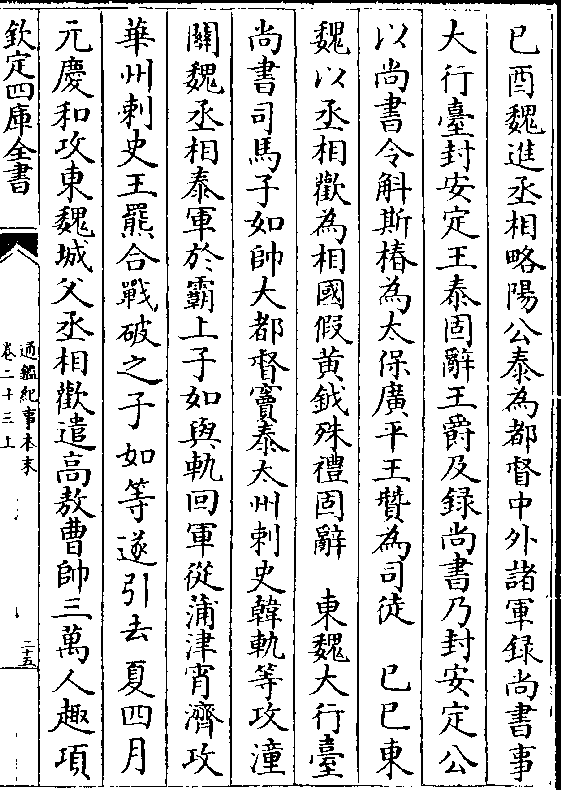 已酉魏進丞相略陽公泰為都督中外諸軍録尚書事
大行臺封安定王泰固辭王爵及録尚書乃封安定公
以尚書令斛斯椿為太保廣平王贊為司徒　已巳東
魏以丞相歡為相國假黄鉞殊禮固辭　東魏大行臺
尚書司馬子如帥大都督竇泰太州刺史韓軌等攻潼
關魏丞相泰軍於霸上子如與軌回軍從蒲津宵濟攻
華州刺史王羆合戰破之子如等遂引去夏四月
元慶和攻東魏城父丞相歡遣高敖曹帥三萬人趣項
欽定四庫全書
通鑑紀事本末
卷二十三上
二十五